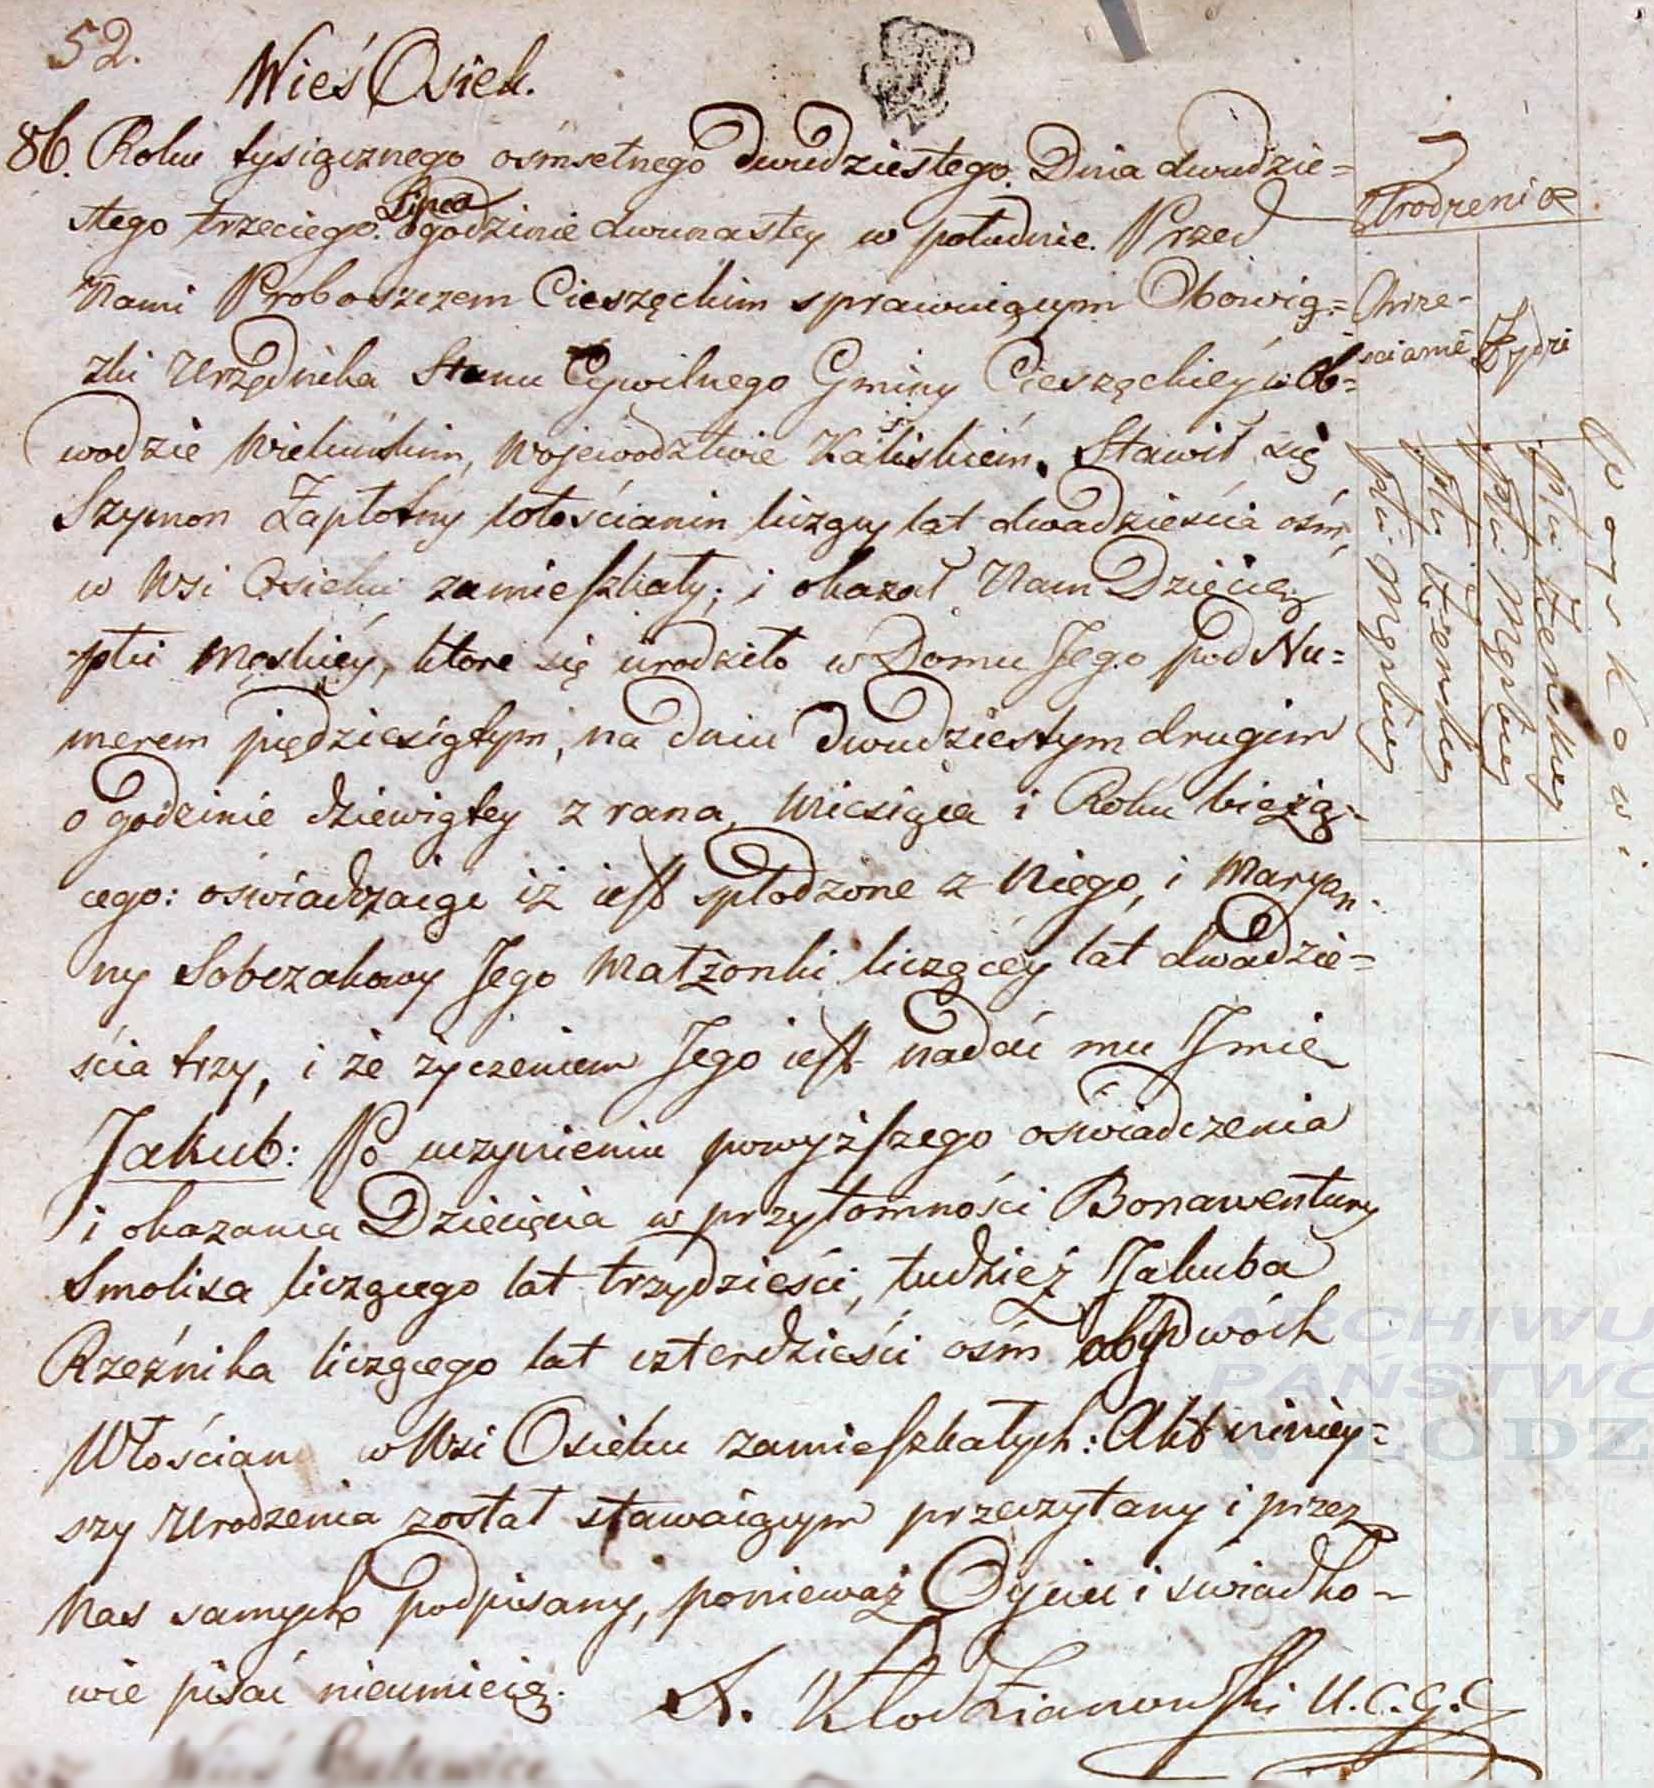 52.
Wieś Osiek.
86. Roku tysiącznego ośmsetnego dwudziestego. Dnia dwudzie=
stego trzeciego. Lipca o godzinie dwunastey w południe. Przed
Nami Proboszczem Cieszęckim sprawuiącym Obowią=
zki Urzędnika Stanu Cywilnego Gminy Cieszęckiey w Ob=
wodzie Wieluńskim, Województwie Kaliskiém. Stawił się
Szymon Zapłotny włościanin liczący lat dwadzieścia ośm,
w Wsi Osieku zamieszkały; i okazał Nam Dziécię
płci męskiéy, które się urodziło w Domu Jego pod Nu=
merem piędziesiątym, na dniu dwudziestym drugim
o godzinie dziewiątey z rana, Miesiąca i Roku bieżą-
cego: oświadczaiąc iż iest spłodzone z Niego, i Maryan-
ny Sobczakowy Jego Małżonki liczącéy lat dwadzie=
ścia trzy, i że życzeniem Jego iest nadać mu Jmie
Jakub: Po uczynieniu powyższego oświadczenia
i okazania Dziecięcia w przytomności Bonawentury
Smolika liczącego lat trzydzieści, tudzież Jakuba
Rzeźnika liczącego lat czterdzieści ośm obydwóch
Włościan w Wsi Osieku zamieszkałych: Akt niniey=
szy Urodzenia został stawaiącym przeczytany i przez
Nas samych podpisany, ponieważ Oyciec i świadko-
wie pisać nieumieią.
A. Kłodzianowski U.C.G.C
Urodzenia
Chrze-
scianie
Żydzi
płci Męskiey
płci Żenskiey
płci Męskiey
płci Żenskiey
ARCHIWU
PAŃSTWO
W ŁODZ